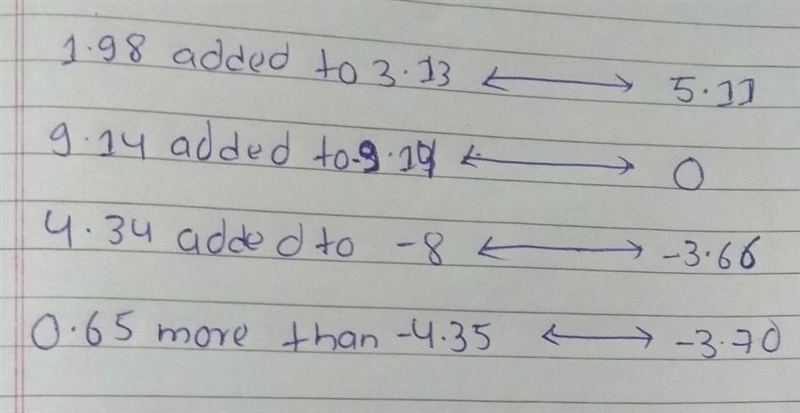 1.98 added to 3.13 ⟷ 5.11
9.14 added to -9.14 ⟷ 0
4.34 added to -8 ⟷ -3.66
0.65 more than -4.35 ⟷ -3.70